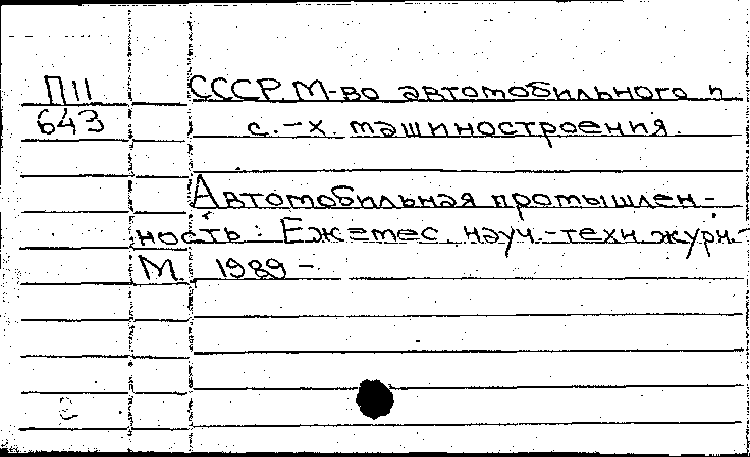 П11 СССР. М-во автомобильного и
643 с.-х. машиностроения.
Автомобильная промышлен-
ность: Ежемес. науч.-техн. журн.-
М. 1989 -